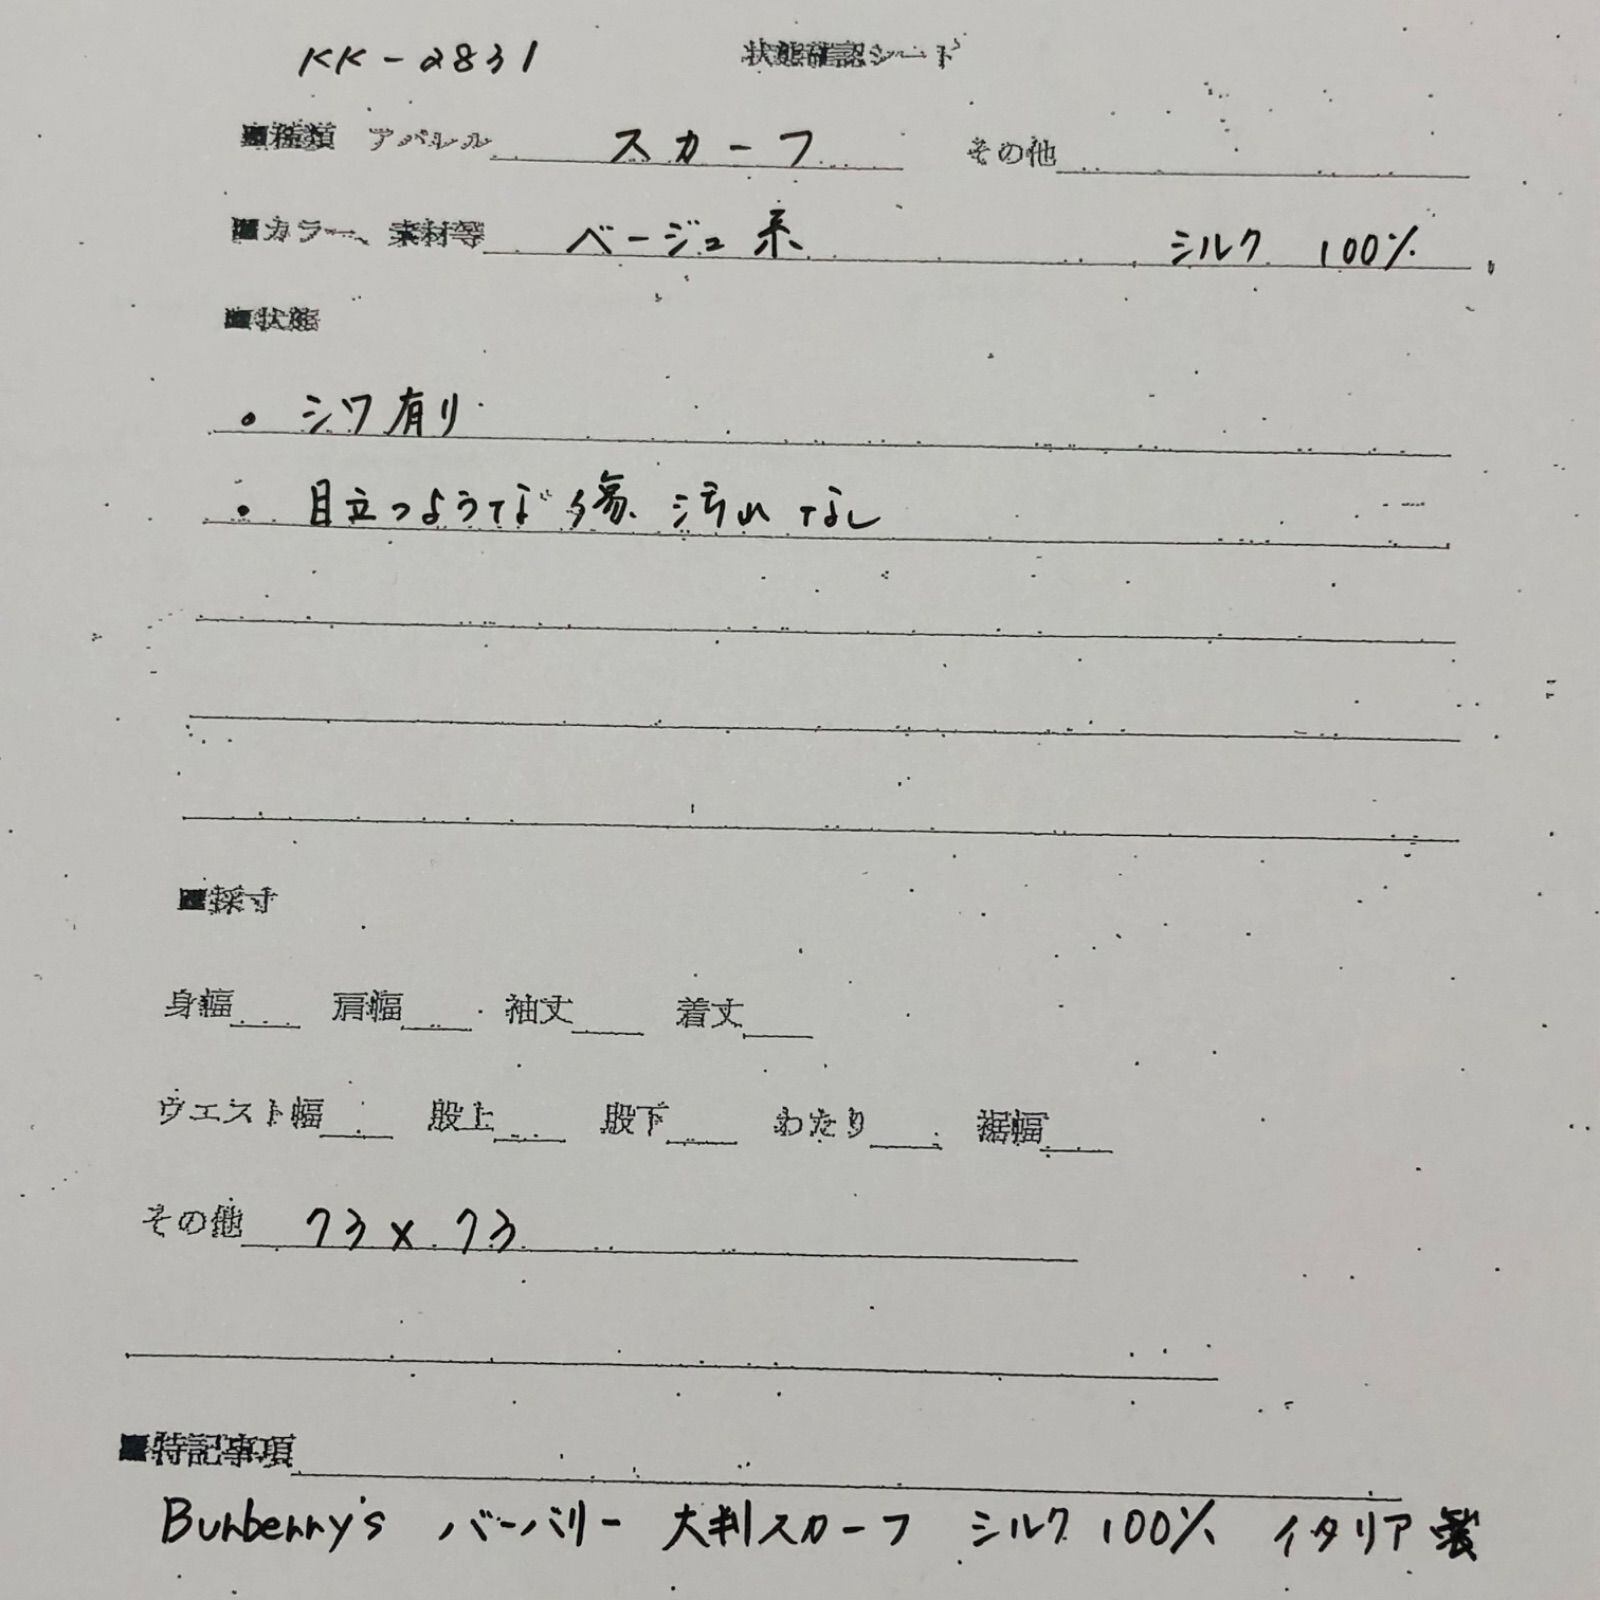 KK-2831 状態確認シート
■種類 アパレル スカーフ その他
■カラー、素材等 ベージュ系 シルク 100%
■状態
• シワ有り
• 目立つような傷、汚れなし
■採寸
身幅 肩幅 袖丈 着丈
ウエスト幅 股上 股下 わたり 裾幅
その他 73x73
■特記事項
Burberry's バーバリー 大判スカーフ シルク 100% イタリア製